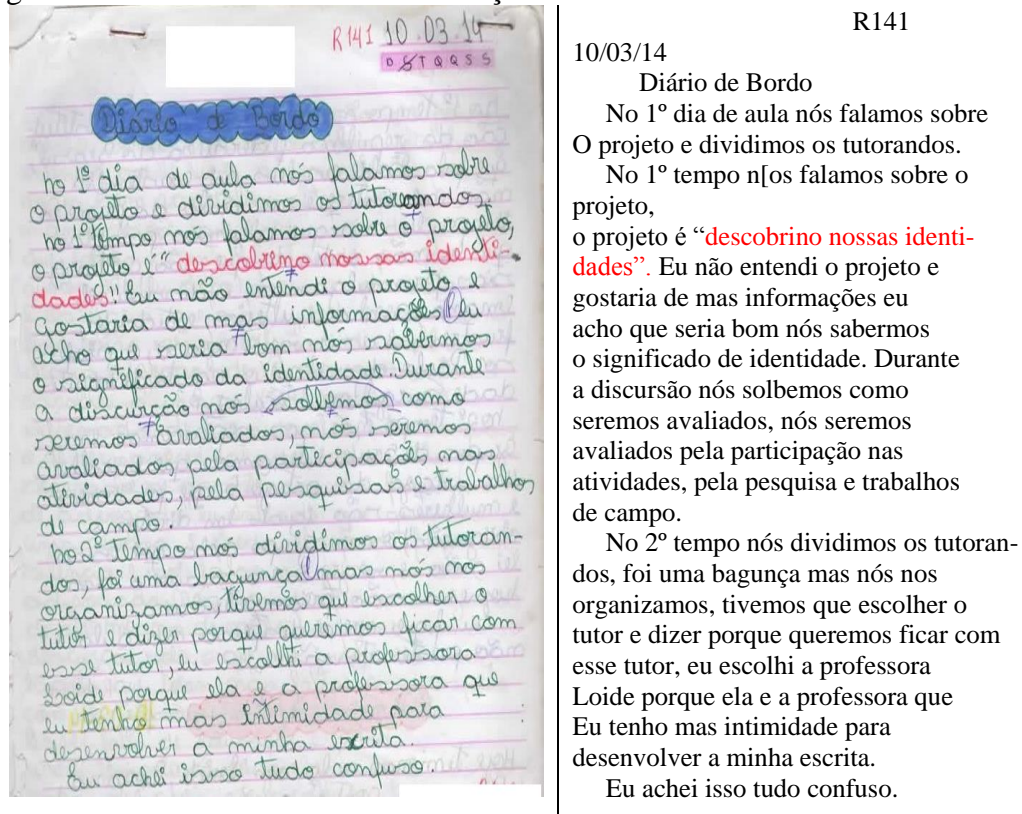 R141 10.03.14
D S T Q Q S S
Diário de Bordo
no 1º dia de aula nós falamos sobre
o projeto e dividimos os tutorandos.
no 1º tempo nós falamos sobre o projeto,
o projeto é "descobrino nossas identi-
dades". Eu não entendi o projeto e
gostaria de mas informações eu
acho que seria bom nós sabermos
o significado da identidade. Durante
a discurção nós solbemos como
seremos avaliados, nós seremos
avaliados pela participação nas
atividades, pela pesquisas e trabalhos
de campo.
no 2º tempo nós dividimos os tutoran-
dos, foi uma bagunça mas nós nos
organizamos, tivemos que escolher o
tutor e dizer porque queremos ficar com
esse tutor, eu escolhi a professora
Loide porque ela e a professora que
eu tenho mas intimidade para
desenvolver a minha escrita.
Eu achei isso tudo confuso.
R141
10/03/14
Diário de Bordo
No 1º dia de aula nós falamos sobre
O projeto e dividimos os tutorandos.
No 1º tempo n[os falamos sobre o
projeto,
o projeto é “descobrino nossas identi-
dades”. Eu não entendi o projeto e
gostaria de mas informações eu
acho que seria bom nós sabermos
o significado de identidade. Durante
a discursão nós solbemos como
seremos avaliados, nós seremos
avaliados pela participação nas
atividades, pela pesquisa e trabalhos
de campo.
No 2º tempo nós dividimos os tutoran-
dos, foi uma bagunça mas nós nos
organizamos, tivemos que escolher o
tutor e dizer porque queremos ficar com
esse tutor, eu escolhi a professora
Loide porque ela e a professora que
Eu tenho mas intimidade para
desenvolver a minha escrita.
Eu achei isso tudo confuso.